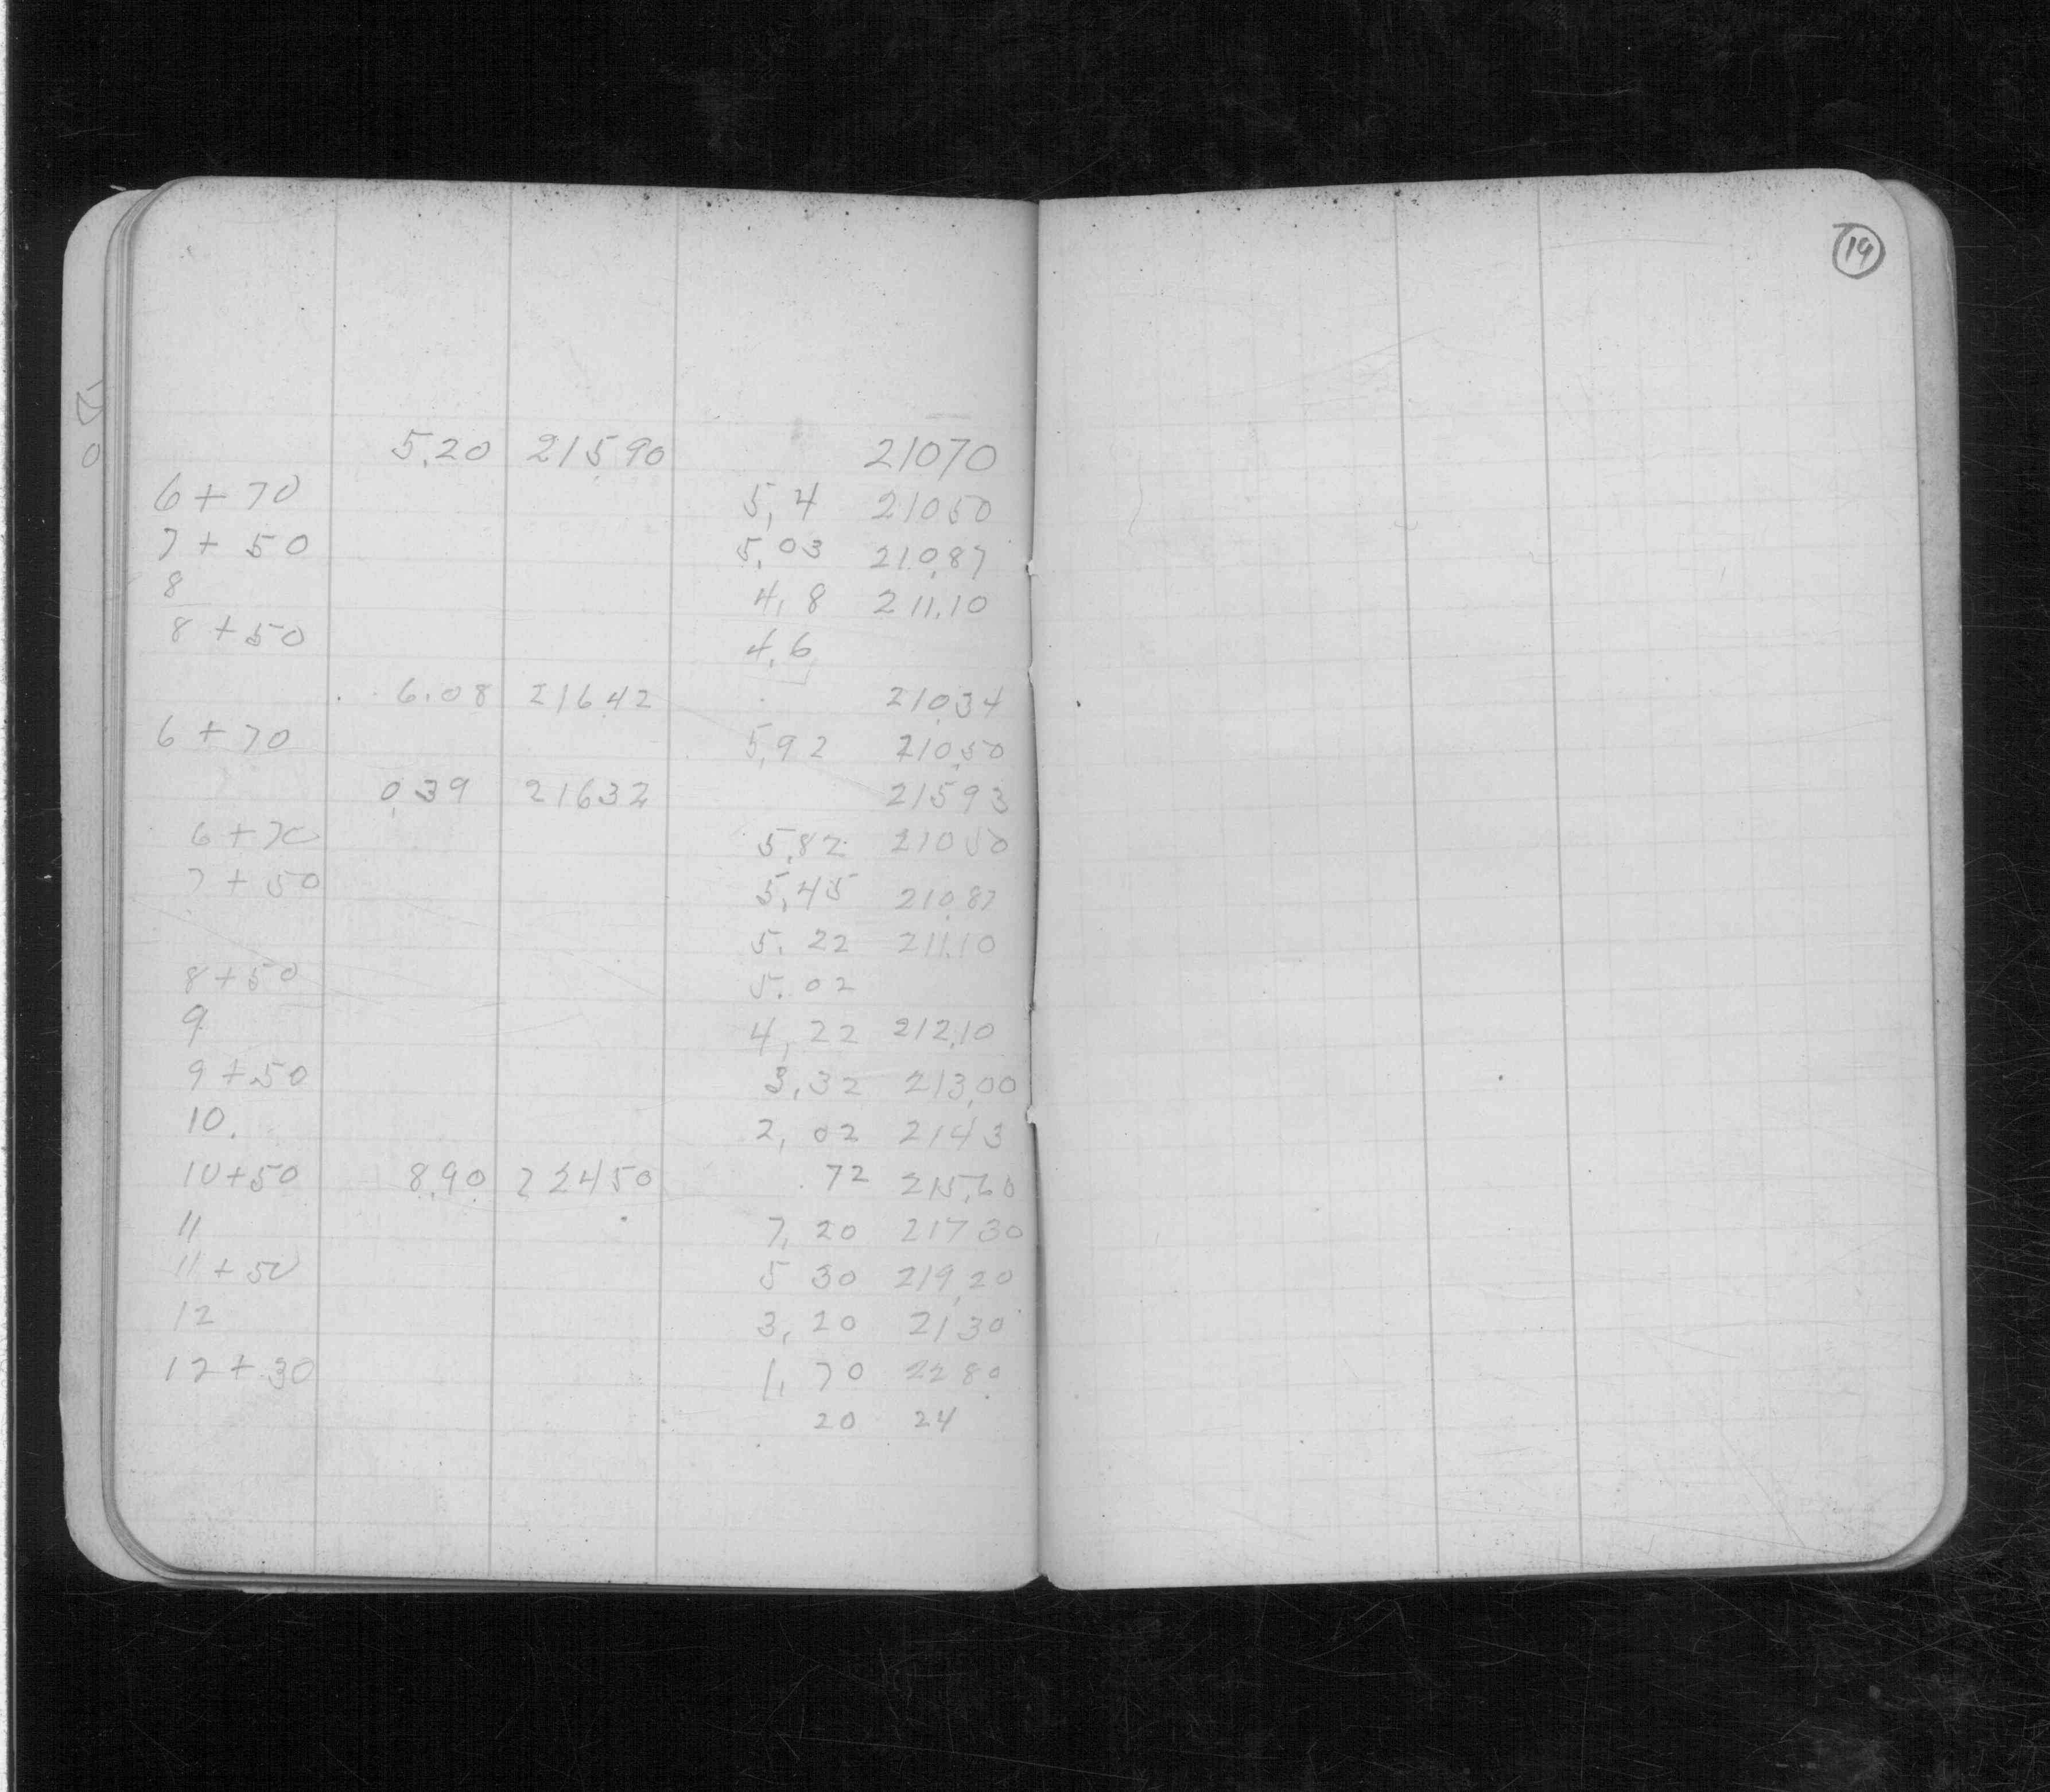 19
5.20 21590 21070
6 + 70 5,4 21050
7 + 50 5,03 210,87
8 4,8 211.10
8 + 50 4,6
6.08 21642 21034
6 + 70 5,92 210,50
0,39 21632 21593
6 + 70 5,82 21050
7 + 50 5,45 210,87
5.22 211.10
8 + 50 5.02
9 4,22 212,10
9 + 50 3,32 213,00
10. 2,02 2143
10+50 8,90 22450 .72 215,60
11 7,20 21730
11 + 50 5 30 219,20
12 3,20 2130
12 + 30 1,70 2280
20 24